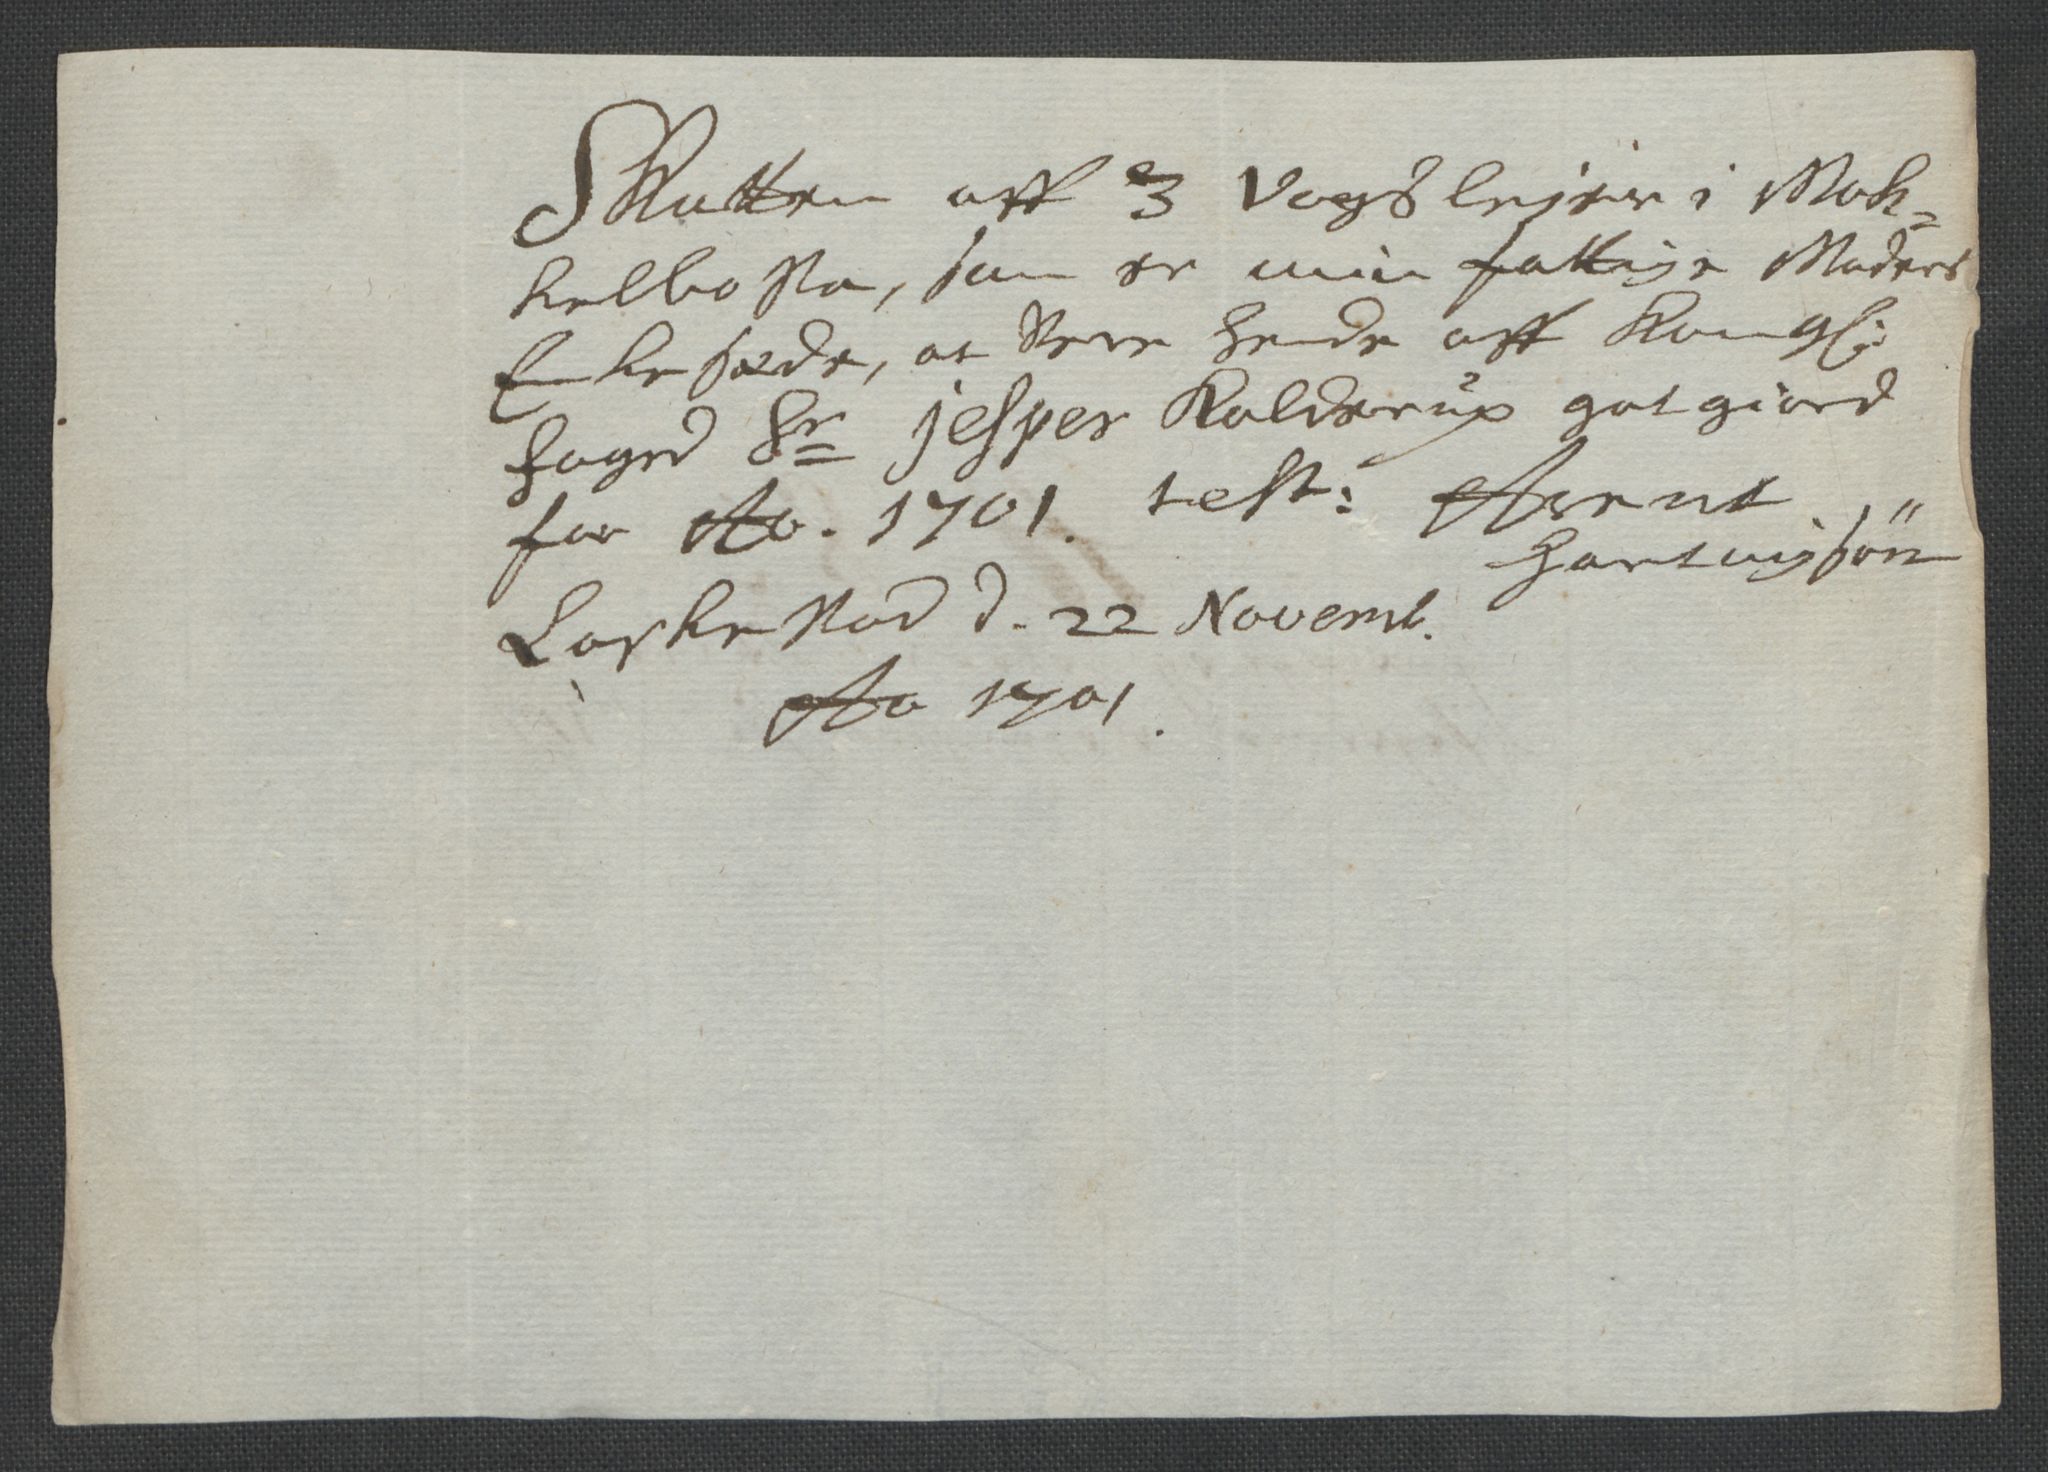 Skatten aff 3 Vogsleyer i Mok-
kelbosta, som er min fattige Moders
Enkesæde, at Vere hende aff Kongl:
foged Sr Jesper Kalderup gotgiord
for Ao. 1701. test: Arent
Hartvigsön
Lockestad d. 22 Novemb.
Ao 1701.